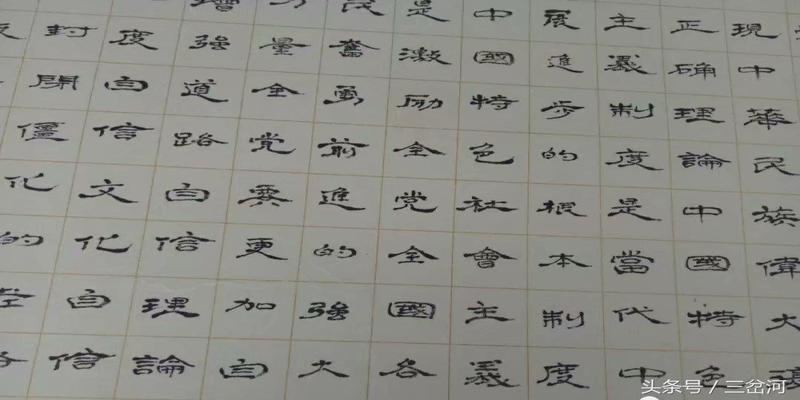 現中華民族偉大復
正确理論中國特色
主義制度是當代中
展進步的根本制度
中國特色社會主義
是激励全党全國各
民奮勇前進的強大
力量全党要更加自
增強道路自信理論
度自信文化自信
封閉僵化的
头条号/三岔河